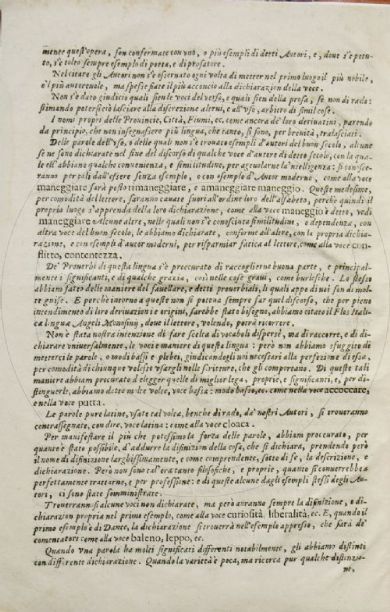 mente quest'opera, son confermate con vno, o più esempli di detti Autori, e, doue s'è potuto, s'è tolto sempre esemplo di poeta, e di prosatore.
Nel citare gli Autori non s'è osseruato ogni volta di metter nel primo luogo il più nobile, e 'l più autoreuole, ma spesse fiate il più acconcio alla dichiarazion della voce.
Non s'è dato giudicio quali sieno voci del verso, e quali sien della prosa, se non di rado: stimando potersi ciò lasciare alla discrezione altrui, e all'vso, arbitro di simil cose.
I nomi propri delle Prouincie, Città, Fiumi, ec. come ancora de' loro deriuatiui, parendo da principio, che non insegnassero più lingua, che tanto, si sono, per breuità, tralasciati.
Delle parole dell'vso, o delle quali non s'è trouato esempli d'autori del buon secolo, alcune se ne son dichiarate nel fine del discorso di qualche voce d'autore di detto secolo, con la quale ell'abbiano qualche conuenenza, e similitudine, per ageuolarne la intelligenza: si conosceranno per tali dall'essere senza esemplo, o con esemplo d'Autor moderno, come alla voce
maneggiare sarà posto rimaneggiare, e a maneggiare maneggio. Queste medesime, per comodità del lettore, saranno cauate fuori all'ordine loro dell'alfabeto, perchè quindi il proprio luogo s'apprenda della loro dichiarazione, come alla voce maneggio è detto, vedi maneggiare. Alcune altre, nelle quali non s'è conosciuta similitudine, e dependenza, con altra voce del buon secolo, le abbiamo dichiarate, conforme all'altre, con la propria dichiarazione, e con esempli d'autor moderni, per risparmiar fatica al lettore, come alla voce conflitto, contentezza.
De' Prouerbi di questa lingua s'è proccurato di raccoglierne buona parte, e principalmente i significanti, e di qualche grazia, così nelle cose graui, come burlesche. Lo stesso abbiam fatto delle maniere del fauellare, e detti prouerbiali, li quali appo di noi son di molte guise. E perchè intorno a queste non si poteua sempre far quel discorso, che per pieno intendimento di loro deriuazioni e origini, sarebbe stato bisogno, abbiamo citato il Flos Italicæ linguæ, Angeli Monosinij, doue il lettore, volendo, potrà ricorrere.
Non è stata nostra intenzione di fare scelta di vocaboli disperse, ma di raccorre, e di dichiarare vniuersalmente, le voci e maniere di questa lingua: però non abbiamo sfuggito di metterci le parole, o modi bassi e plebei, giudicandogli noi necessari alla perfezione di essa, per comodità di chiunque volesse vsargli nelle scritture, che gli comportano. Di queste tali maniere abbiam proccurato d'elegger quelle di miglior lega, proprie, e significanti, e, per distinguerle, abbiamo detto molte volte, voce bassa: modo basso, ec. come nella voce accoccare, e nella voce putta.
Le parole pure latine, vsate tal volta, benchè di rado, da' nostri Autori, si troueranno contrassegnate, con dire, voce latina: come alla voce cloaca.
Per manifestare il più che potessimo la forza delle parole, abbiam proccurato, per quanto è stato possibile, d'addurre la difinizion della cosa, che si dichiara, prendendo però il nome di difinizione larghissimamente, e come comprendente, sotto di se, la descrizione, e dichiarazione. Però non son tal'ora tanto filosofiche, e proprie, quanto si conuerrebbe a perfettamente trattarne, e per professione: e di queste alcune dagli esempli stessi degli Autori, ci sono state somministrate.
Troueranusi alcune voci non dichiarate, ma però auranno sempre la difinizione, e dichiarazion propria nel primo esemplo, come alla voce curiosità, liberalità, ec. E, quando il primo esemplo è di Dante, la dichiarazione si trouerrà nell'esemplo appresso, che sarà de' comentatori come alla voce baleno, leppo, ec.
Quando vna parola ha molti significati differenti notabilmente, gli abbiamo distinti con differente dichiarazione. Quando la varietà è poca, ma ricerca pur qualche distinzione